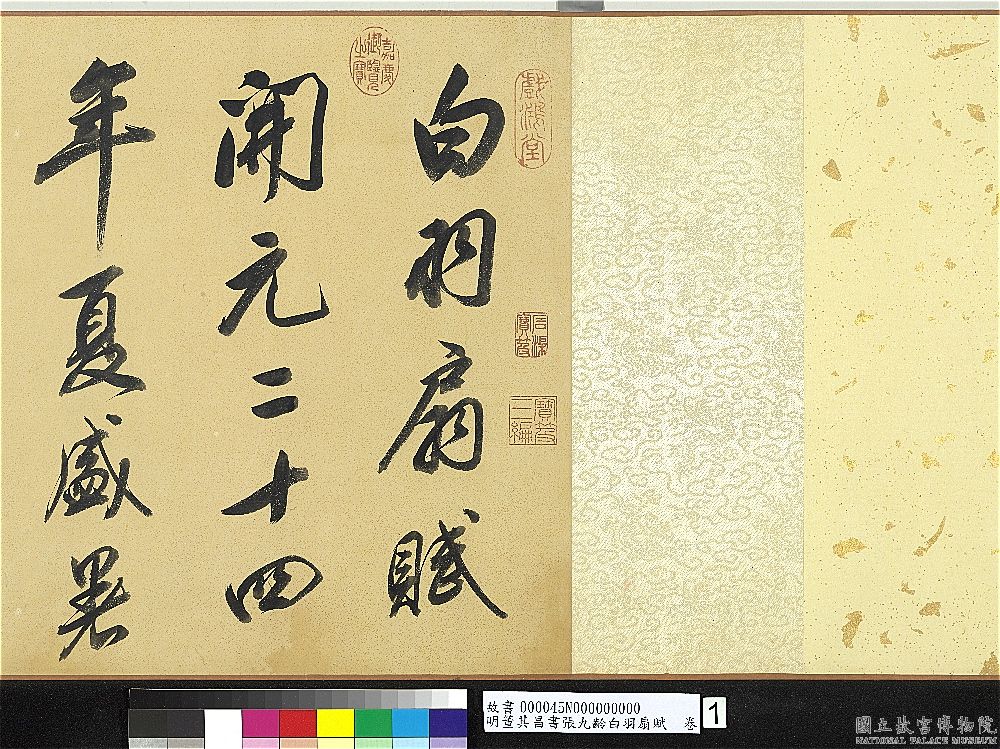 白羽扇賦
開元二十四
年夏盛暑
戲鴻堂
嘉慶御覽之寶
石渠寶笈
寶笈三編
故書 000045N000000000
明董其昌書張九齡白羽扇賦 卷
1
國立故宮博物院
NATIONAL PALACE MUSEUM